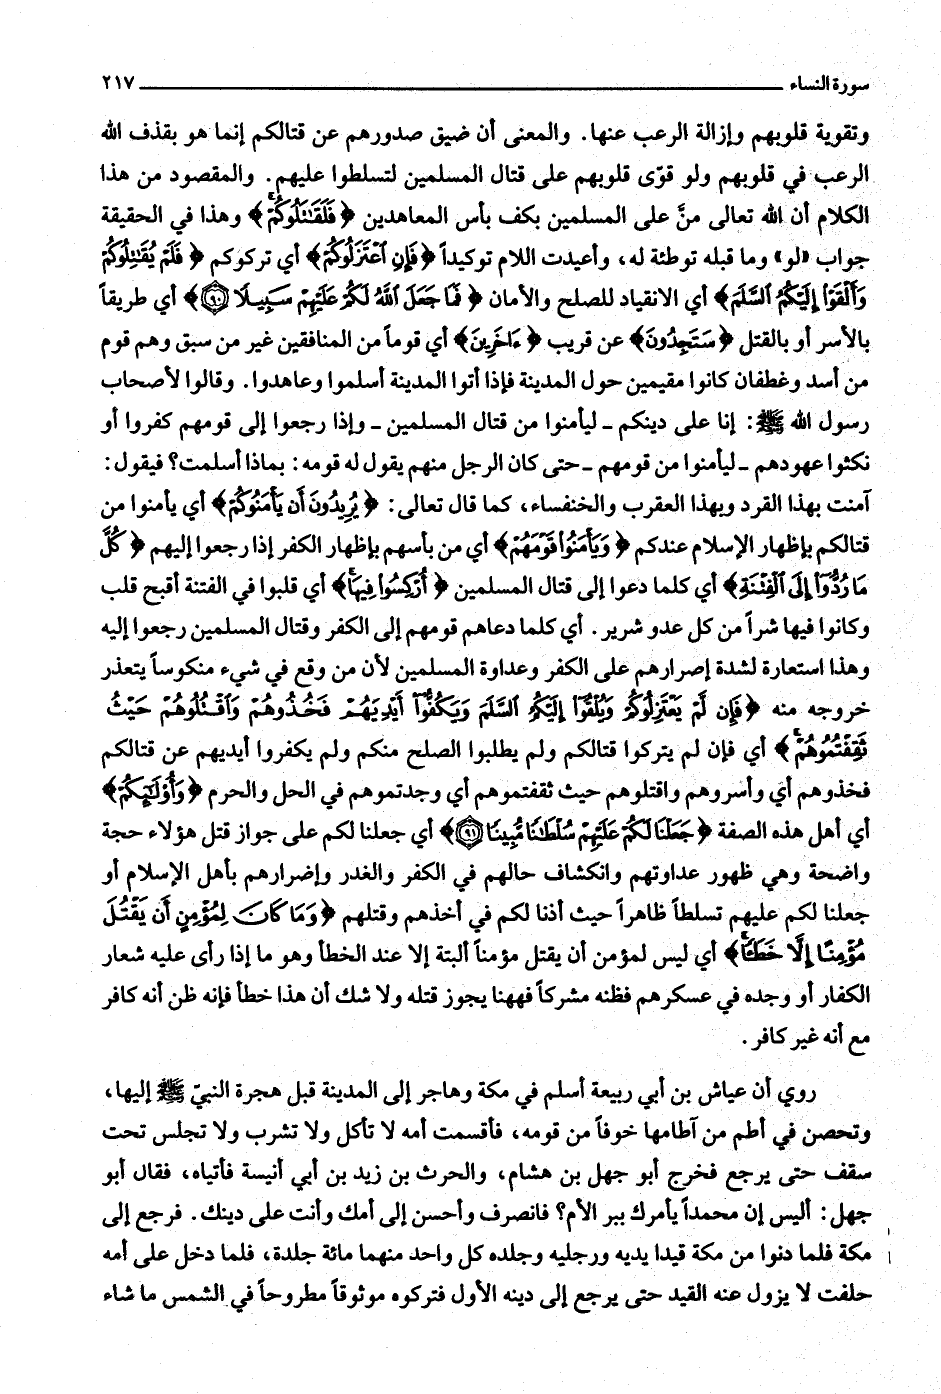 سورة النساء ٢١٧
وتقوية قلوبهم وإزالة الرعب عنها. والمعنى أن ضيق صدورهم عن قتالكم إنما هو بقذف الله
الرعب في قلوبهم ولو قوّى قلوبهم على قتال المسلمين لتسلطوا عليهم. والمقصود من هذا
الكلام أن الله تعالى منَّ على المسلمين بكف بأس المعاهدين ﴿فَلَقَٰتَلُوكُمْۚ﴾ وهذا في الحقيقة
جواب «لو» وما قبله توطئة له، وأعيدت اللام توكيداً ﴿فَإِنِ ٱعْتَزَلُوكُمْ﴾ أي تركوكم ﴿فَلَمْ يُقَٰتِلُوكُمْ
وَأَلْقَوْا۟ إِلَيْكُمُ ٱلسَّلَمَ﴾ أي الانقياد للصلح والأمان ﴿فَمَا جَعَلَ ٱللَّهُ لَكُمْ عَلَيْهِمْ سَبِيلًا ۝٩٠﴾ أي طريقاً
بالأسر أو بالقتل ﴿سَتَجِدُونَ﴾ عن قريب ﴿ءَاخَرِينَ﴾ أي قوماً من المنافقين غير من سبق وهم قوم
من أسد وغطفان كانوا مقيمين حول المدينة فإذا أتوا المدينة أسلموا وعاهدوا. وقالوا لأصحاب
رسول الله ﷺ: إنا على دينكم ـ ليأمنوا من قتال المسلمين ـ وإذا رجعوا إلى قومهم كفروا أو
نكثوا عهودهم ـ ليأمنوا من قومهم ـ حتى كان الرجل منهم يقول له قومه: بماذا أسلمت؟ فيقول:
آمنت بهذا القرد وبهذا العقرب والخنفساء، كما قال تعالى: ﴿يُرِيدُونَ أَن يَأْمَنُوكُمْ﴾ أي يأمنوا من
قتالكم بإظهار الإسلام عندكم ﴿وَيَأْمَنُوا۟ قَوْمَهُمْ﴾ أي من بأسهم بإظهار الكفر إذا رجعوا إليهم ﴿كُلَّ
مَا رُدُّوٓا۟ إِلَى ٱلْفِتْنَةِ﴾ أي كلما دعوا إلى قتال المسلمين ﴿أُرْكِسُوا۟ فِيهَاۚ﴾ أي قلبوا في الفتنة أقبح قلب
وكانوا فيها شراً من كل عدو شرير. أي كلما دعاهم قومهم إلى الكفر وقتال المسلمين رجعوا إليه
وهذا استعارة لشدة إصرارهم على الكفر وعداوة المسلمين لأن من وقع في شيء منكوساً يتعذر
خروجه منه ﴿فَإِن لَّمْ يَعْتَزِلُوكُمْ وَيُلْقُوٓا۟ إِلَيْكُمُ ٱلسَّلَمَ وَيَكُفُّوٓا۟ أَيْدِيَهُمْ فَخُذُوهُمْ وَٱقْتُلُوهُمْ حَيْثُ
ثَقِفْتُمُوهُمْۚ﴾ أي فإن لم يتركوا قتالكم ولم يطلبوا الصلح منكم ولم يكفروا أيديهم عن قتالكم
فخذوهم أي وأسروهم واقتلوهم حيث ثقفتموهم أي وجدتموهم في الحل والحرم ﴿وَأُو۟لَٰٓئِكُمْ﴾
أي أهل هذه الصفة ﴿جَعَلْنَا لَكُمْ عَلَيْهِمْ سُلْطَٰنًا مُّبِينًا ۝٩١﴾ أي جعلنا لكم على جواز قتل هؤلاء حجة
واضحة وهي ظهور عداوتهم وانكشاف حالهم في الكفر والغدر وإضرارهم بأهل الإسلام أو
جعلنا لكم عليهم تسلطاً ظاهراً حيث أذنا لكم في أخذهم وقتلهم ﴿وَمَا كَانَ لِمُؤْمِنٍ أَن يَقْتُلَ
مُؤْمِنًا إِلَّا خَطَـًٔاۚ﴾ أي ليس لمؤمن أن يقتل مؤمناً ألبتة إلا عند الخطأ وهو ما إذا رأى عليه شعار
الكفار أو وجده في عسكرهم فظنه مشركاً فههنا يجوز قتله ولا شك أن هذا خطأ فإنه ظن أنه كافر
مع أنه غير كافر.
روي أن عياش بن أبي ربيعة أسلم في مكة وهاجر إلى المدينة قبل هجرة النبيّ ﷺ إليها،
وتحصن في أطم من آطامها خوفاً من قومه، فأقسمت أمه لا تأكل ولا تشرب ولا تجلس تحت
سقف حتى يرجع فخرج أبو جهل بن هشام، والحرث بن زيد بن أبي أنيسة فأتياه، فقال أبو
جهل: أليس إن محمداً يأمرك ببر الأم؟ فانصرف وأحسن إلى أمك وأنت على دينك. فرجع إلى
مكة فلما دنوا من مكة قيدا يديه ورجليه وجلده كل واحد منهما مائة جلدة، فلما دخل على أمه
حلفت لا يزول عنه القيد حتى يرجع إلى دينه الأول فتركوه موثوقاً مطروحاً في الشمس ما شاء